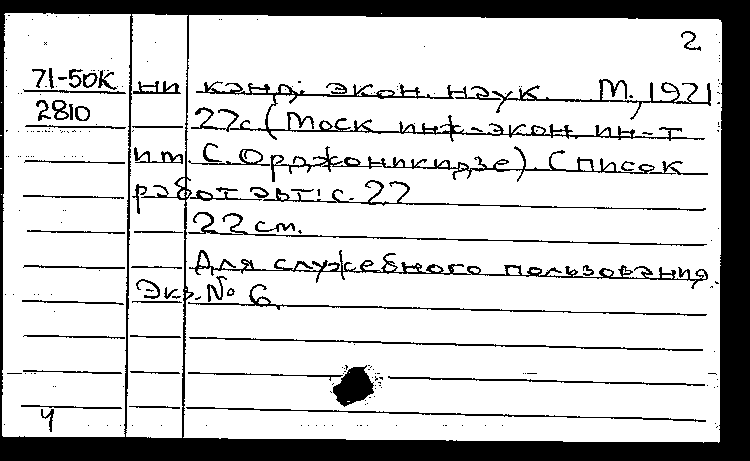 2
71-50к ни канд. экон. наук. М., 1971
2810 27с (Моск инж-экон. ин-т
им. С. Орджоникидзе). Список
работ авт: с. 27
22 см.
Для служебного пользования.
Экз. № 6.
ч